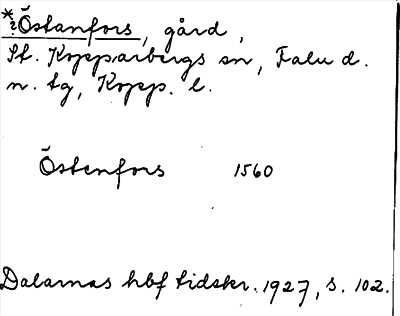 *?Östanfors, gård,
St. Kopparbergs sn, Falu d.
n. tg, Kopp. l.
Östenfors 1560
Dalarnas hbf tidskr. 1927, s. 102.